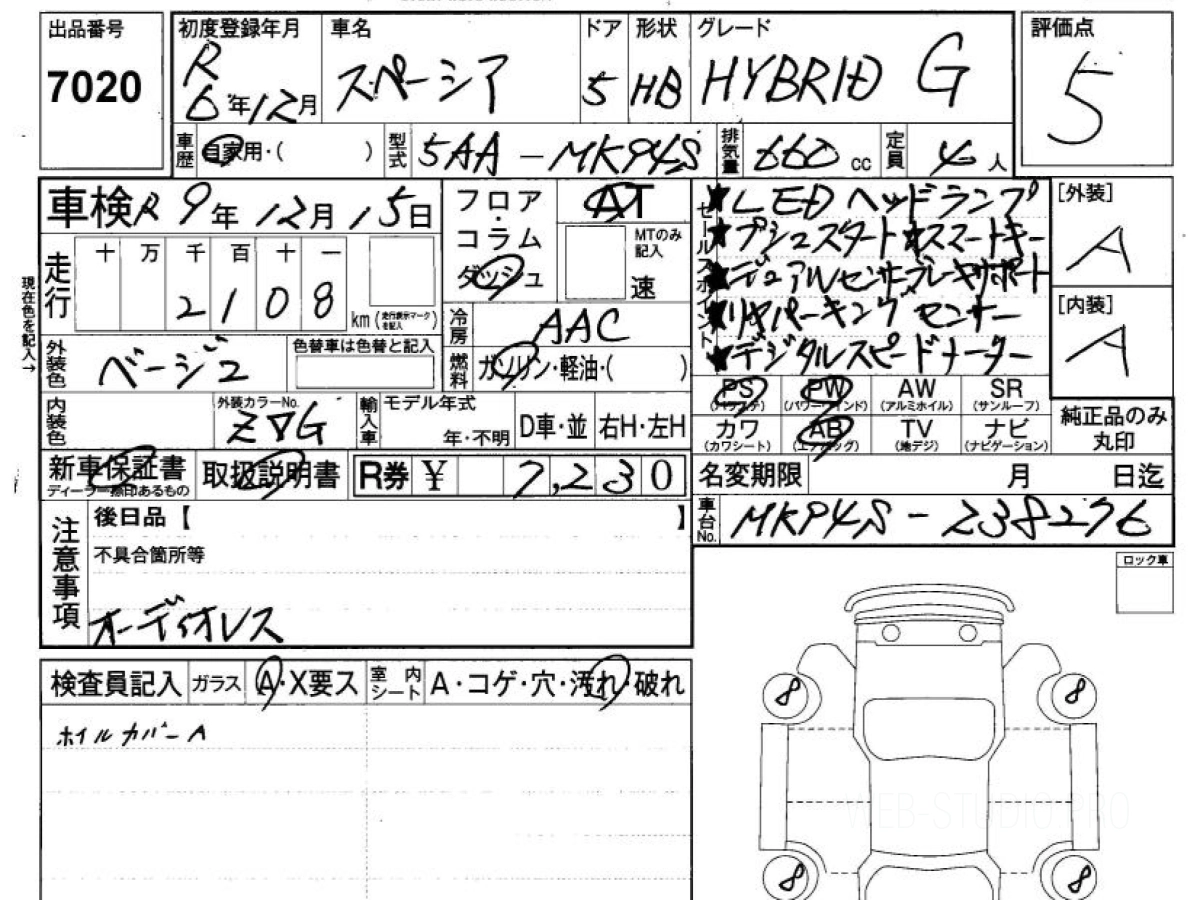 出品番号
7020
初度登録年月
R
6年12月
車名
スペーシア
ドア
5
形状
HB
グレード
HYBRID G
評価点
5
車歴
自家用・( )
型式
5AA-MK94S
排気量
660 cc
定員
4人
車検 R 9年12月15日
走行
十 万 千 百 十 一
2 1 0 8
km (走行表示マークを記入)
現在色を記入→
フロア・コラム
ダッシュ
AT
MTのみ記入
速
冷房
AAC
燃料
ガソリン・軽油・( )
セールスポイント
★LEDヘッドランプ
★プシュスタート★スマートキー
★デュアルセンサブレーキサポート
★リヤパーキングセンサー
★デジタルスピードメーター
[外装]
A
[内装]
A
外装色
ベージュ
色替車は色替と記入
内装色
外装カラーNo.
Z7G
輸入車
モデル年式
年・不明
D車・並
右H・左H
PS
(パワステ)
PW
(パワーウインド)
AW
(アルミホイル)
SR
(サンルーフ)
カワ
(カワシート)
AB
(エアバッグ)
TV
(地デジ)
ナビ
(ナビゲーション)
純正品のみ
丸印
新車保証書
ディーラー捺印あるもの
取扱説明書
R券 ¥ 7,230
名変期限 月 日迄
車台No.
MK94S-238276
注意事項
後日品【 】
不具合箇所等
オーディオレス
ロック車
検査員記入
ガラス
A・X要ス
室内シート
A・コゲ・穴・汚れ・破れ
ホイルカバーA
8
8
8
8
WEB-STUDIO.PRO